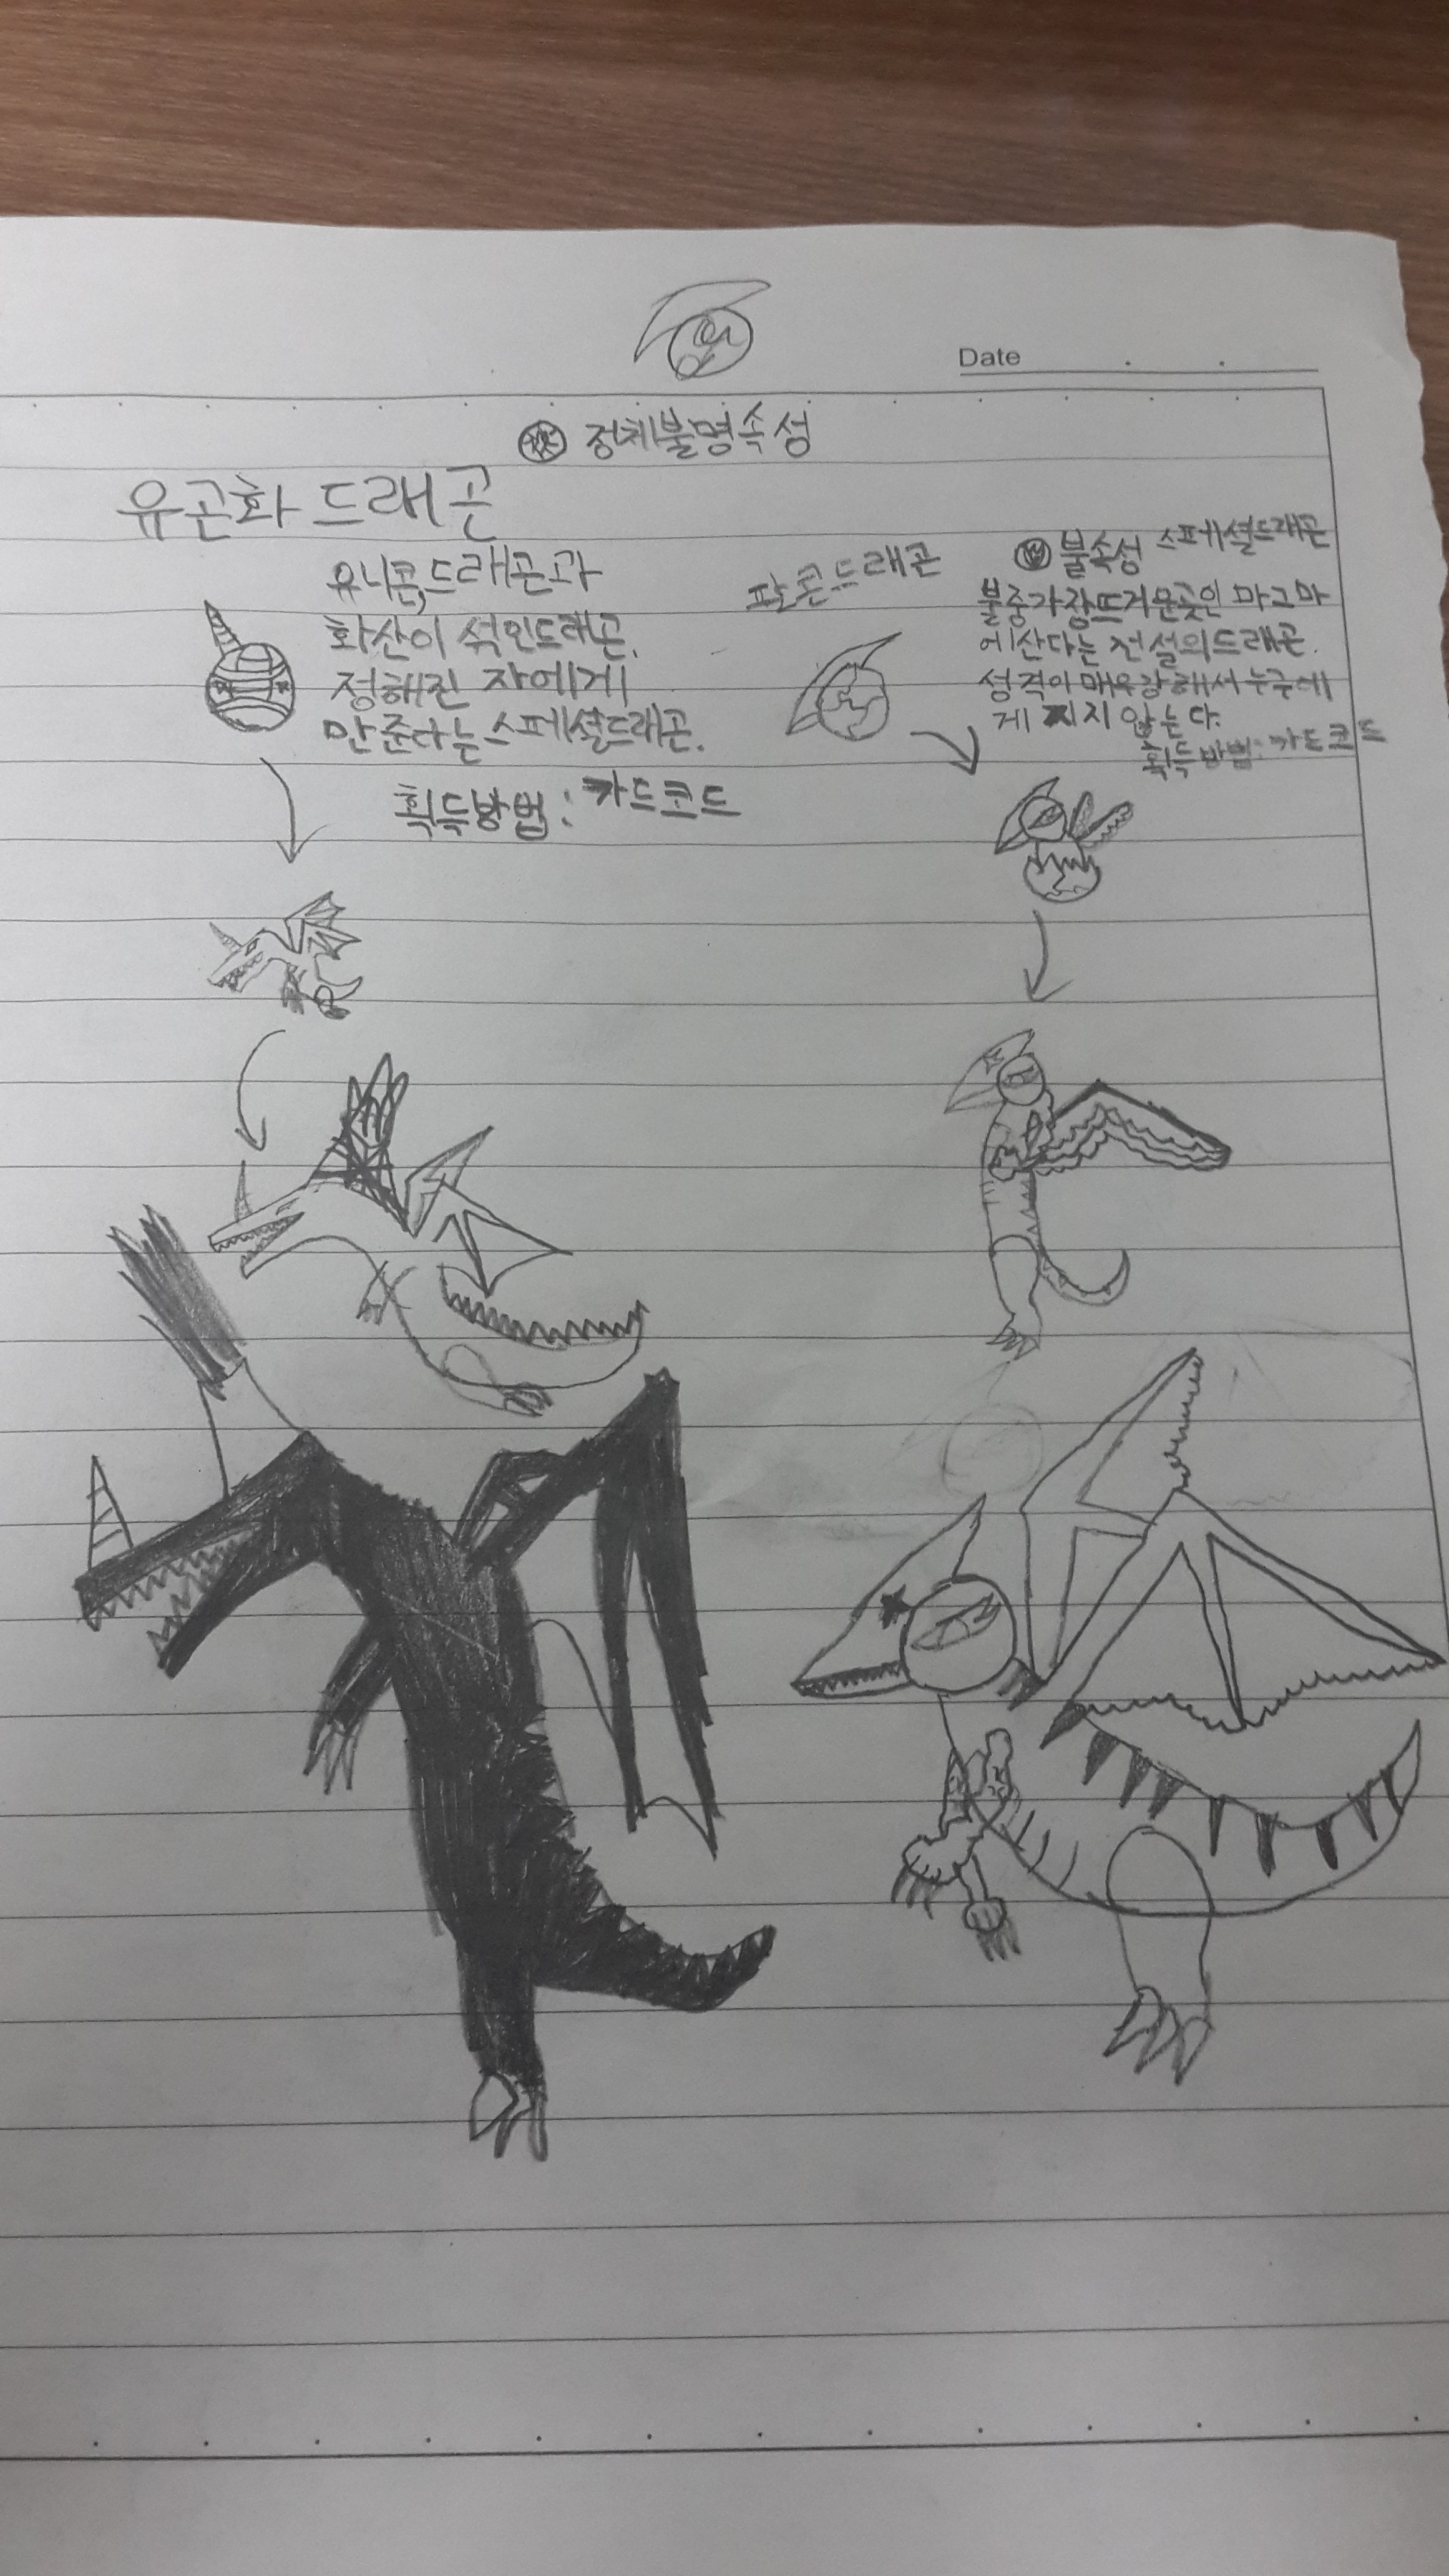 Date
정체불명속성
유곤화 드래곤
유니콘,드래곤과
화산이 섞인드래곤.
정해진 자에게
만 준다는 스페셜드래곤.
획득방법: 카드코드
팔콘드래곤
불속성 스페셜드래곤
불중가장뜨거운곳인 마그마
에산다는 전설의드래곤.
성격이매우강해서누구에
게 지지 않는다.
획득방법: 카드코드